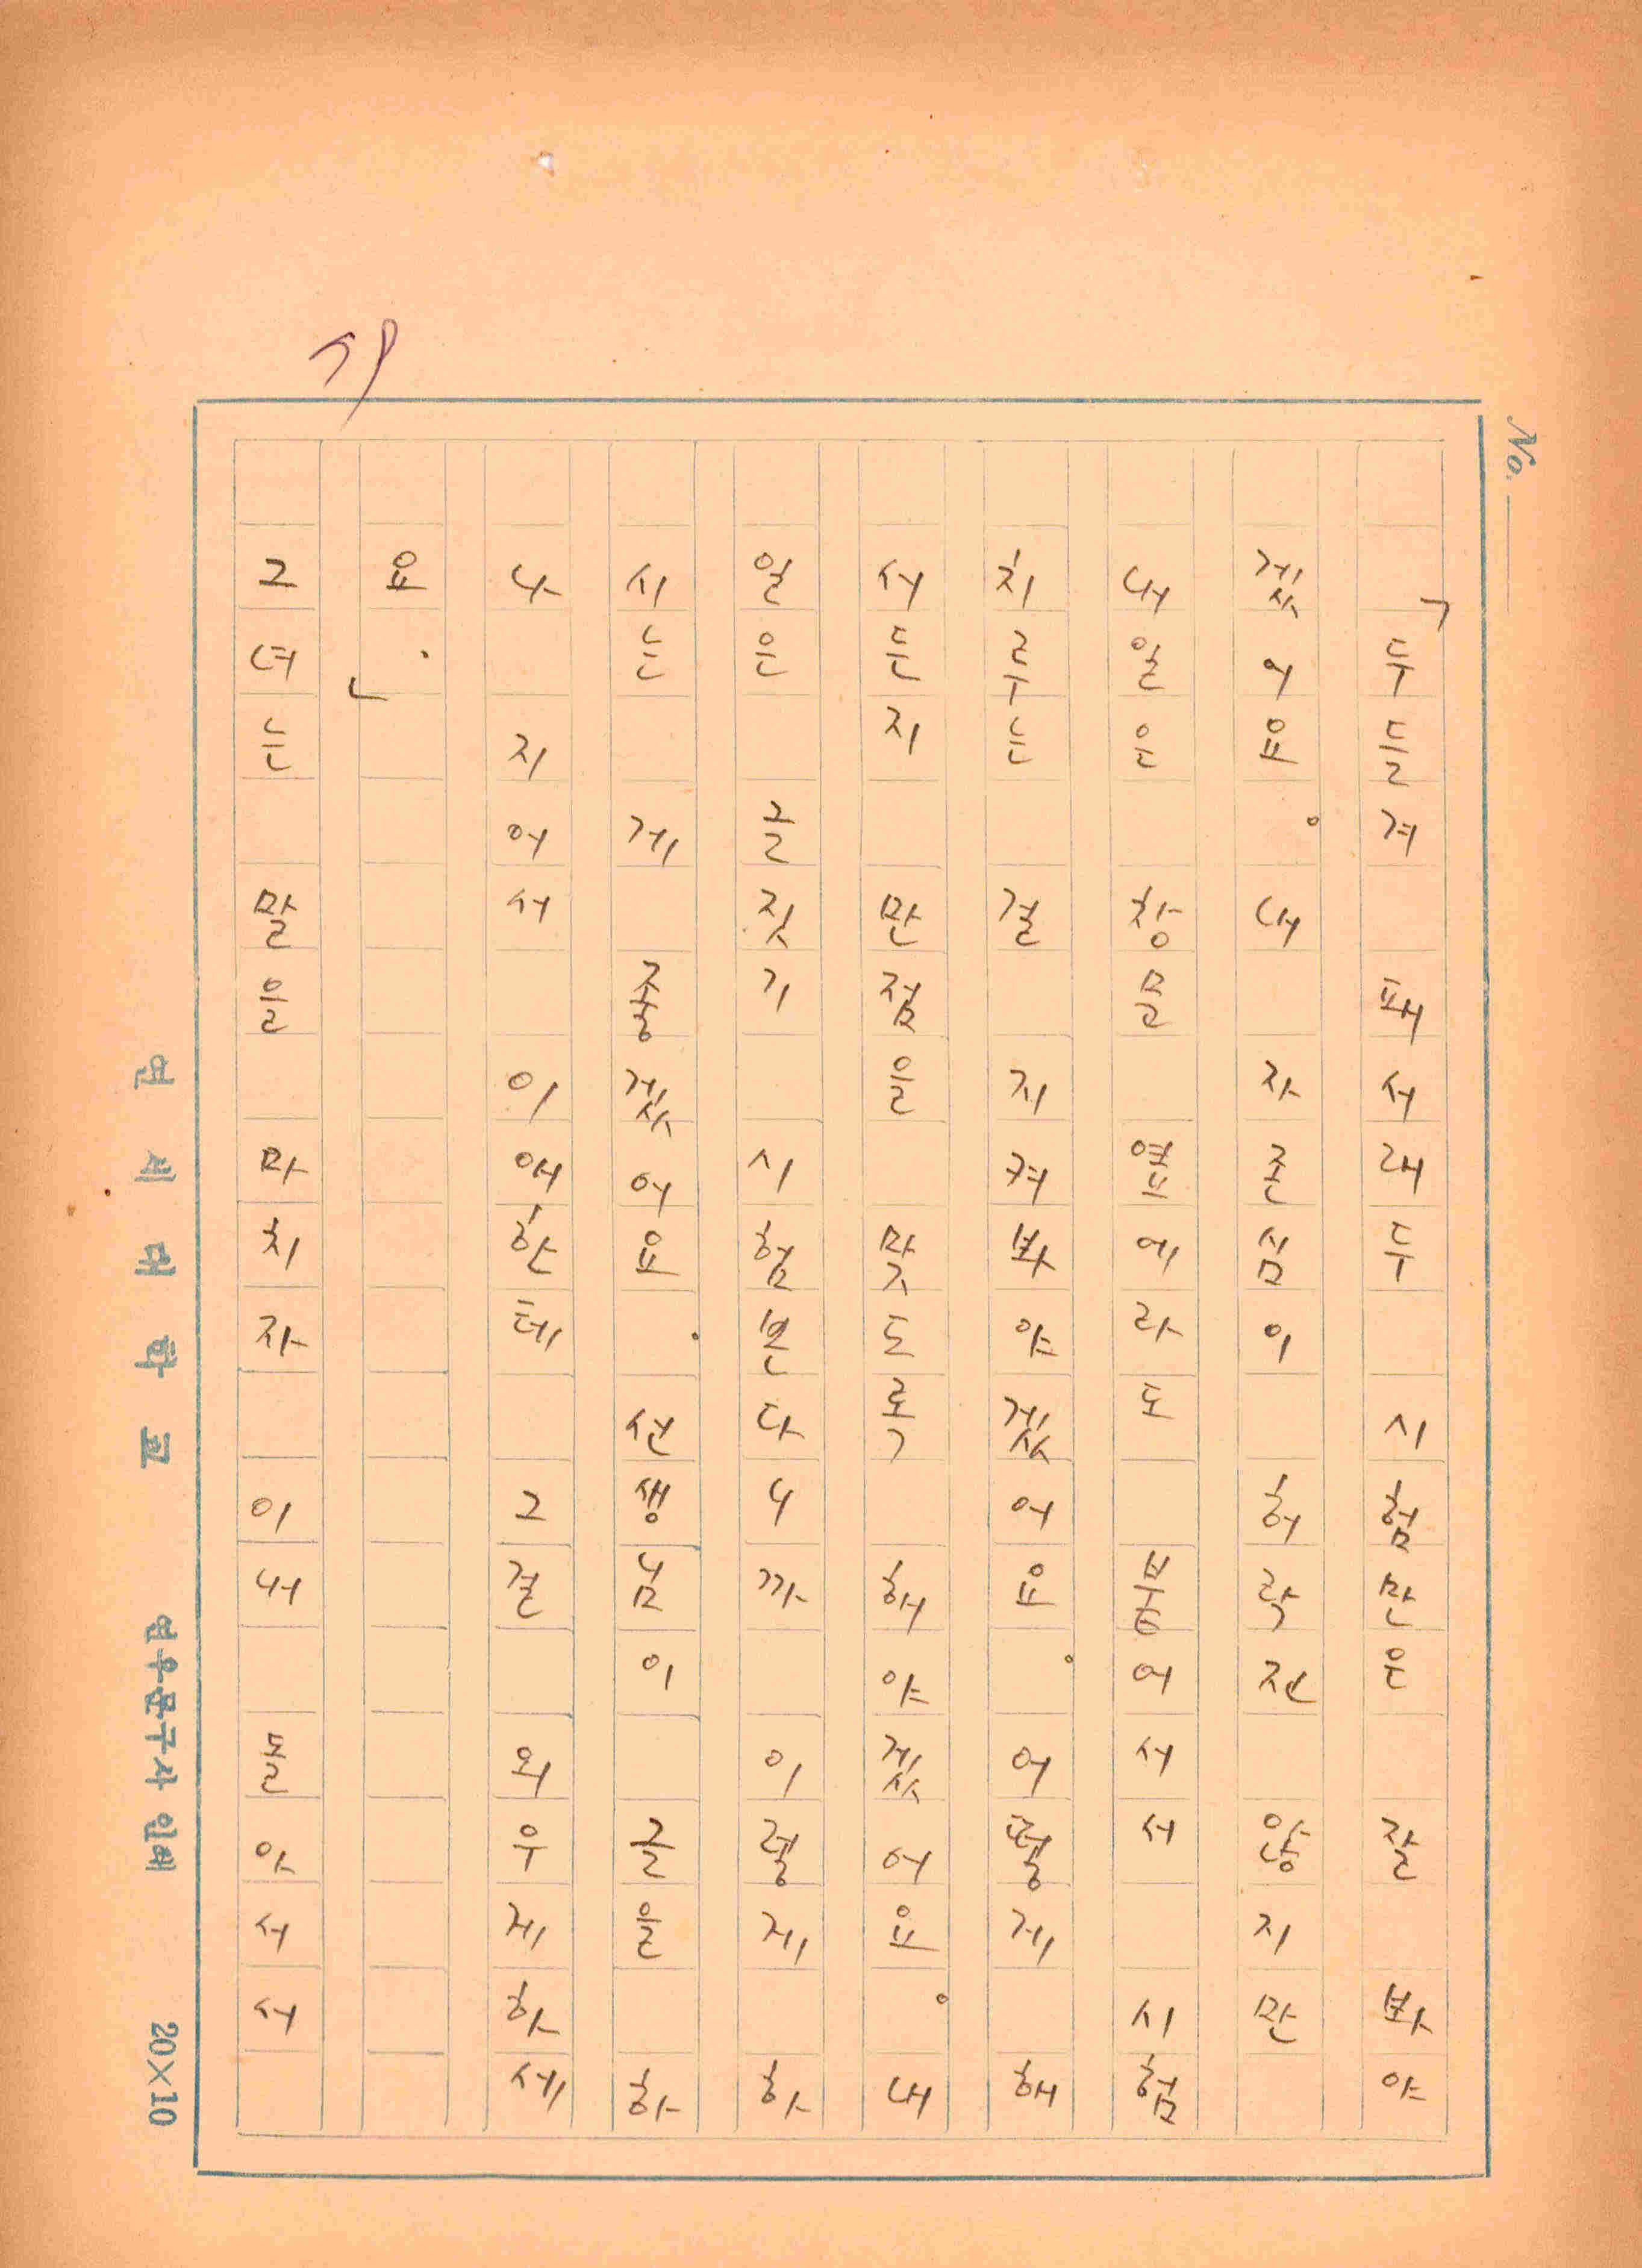 No.
「두들겨 패서래두 시험만은 잘 봐야
겠어요。내 자존심이 허락진 않지만
내일은 창문 옆에라도 붙어서서 시험
치루는 걸 지켜봐야겠어요。어떻게 해
서든지 만점을 맞도록 해야겠어요。내
일은 글짓기 시험 본다니까 이렇게 하
시는 게 좋겠어요. 선생님이 글을 하
나 지어서 이 애한테 그걸 외우게 하세
요.」
그녀는 말을 마치자 이내 돌아서서
연세대학교 연우문구사 인쇄 20×10